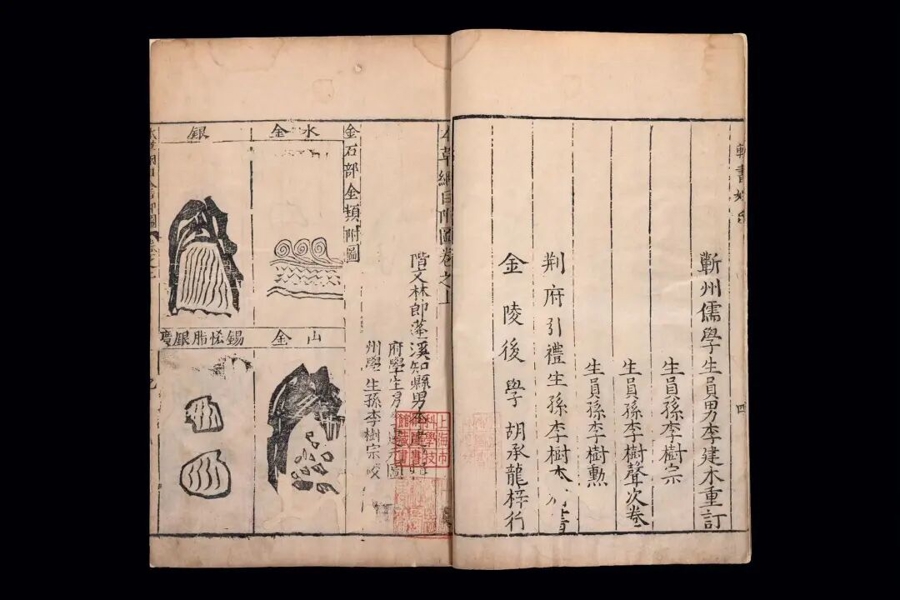 蘄州儒學生員男李建木重訂
生員孫李樹宗
生員孫李樹聲次卷
生員孫李樹勳
荆府引禮生孫李樹本書
金陵後學胡承龍梓行
本草綱目附圖卷之上
階文林郎蓬溪知縣男李建
府學生員男李建元圖
州學生孫李樹宗校
金石部金類附圖
水金
銀
山金
錫恡脂銀